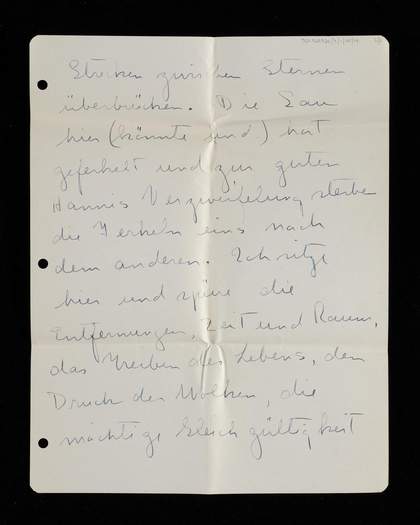 Strecken zwischen Sternen
überbrücken. Die Sau
hier (könnte und) hat
geferkelt und zur guten
Hannis Verzweiflung sterben
die Ferkeln eins nach
dem anderen. Ich sitze
hier und spüre die
Entfernungen, Zeit und Raum,
das Treiben des Lebens, den
Druck der Wolken, die
mächtige Gleichgültigkeit